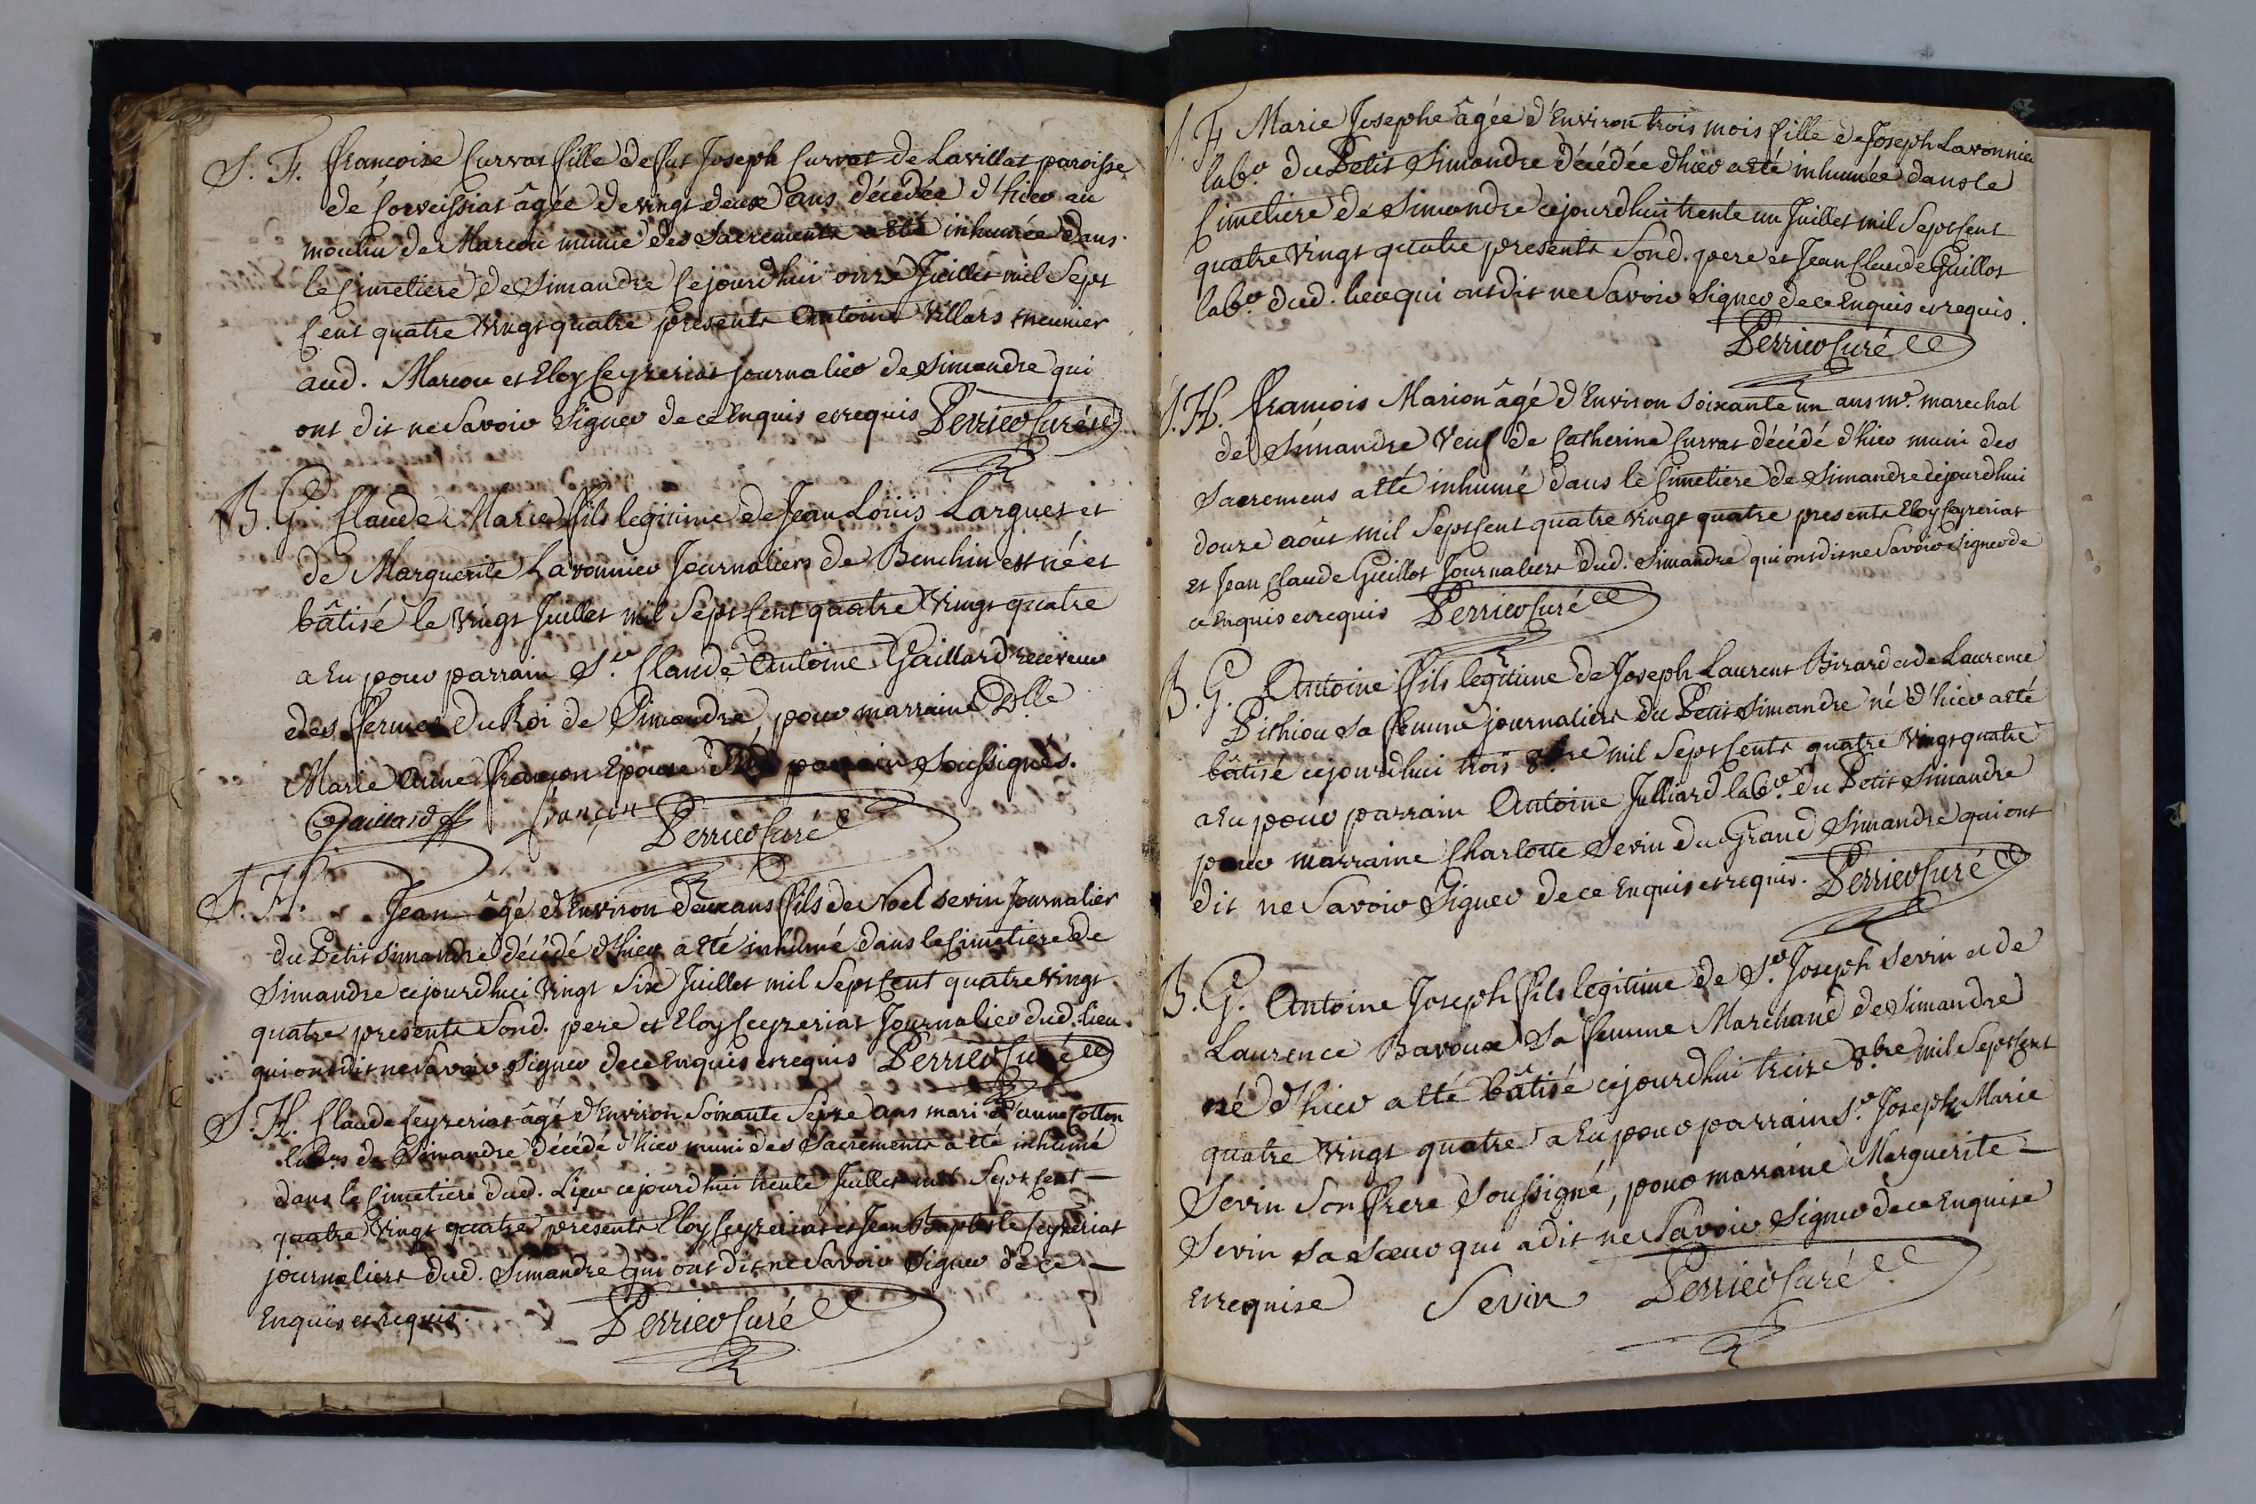 S. F. françoise Curvat fille de fut Joseph Curvat de Lavillat paroisse
de Corveissiat âgée de vingt deux ans décédée d'hier au
moulin de Marcou munie des Sacrements a été inhumée dans
le Cimetiere de Simandre Cejourdhui onze Juillet mil Sept
Cent quatre vingt quatre presents Antoine Villars meunier
aud. Marcou et Eloy Ceyzeriat journalier de Simandre qui
ont dit ne Savoir Signer de ce Enquis et requis Perrier Curé
B. G. Claude Marie fils legitime de Jean Loüis Larguet et
de Marguerite Lavonnier Journaliers de Benchin est né et
bâtisé le vingt Juillet mil Sept Cent quatre vingt quatre
a Eu pour parrain Sr. Claude Antoine Gaillard receveur
des fermes du Roi de Simandre, pour marraine Dlle
Marie Anne françon Epouse parrain Soussignés.
Gaillard françon Perrier Curé
S. H. Jean âgé d'Environ deux ans fils de Noel Sevin Journalier
du Petit Simandre décédé d'hier a été inhumé dans le Cimetiere de
Simandre cejourdhui vingt Six Juillet mil Sept Cent quatre vingt
quatre presents Sond. pere et Eloy Ceyzeriat Journalier dud. lieu
qui ont dit ne Savoir Signer de ce Enquis et requis Perrier Curé
S. H. Claude Ceyzeriat âgé d'Environ Soixante Seize ans mari d'anne Cotton
de Simandre décédé d'hier muni des Sacrements a été inhumé
dans le Cimetiere dud. Lieu cejourdhui trente Juillet mil Sept Cent
quatre vingt quatre presents Eloy Ceyzeriat et Jean Baptiste Ceyzeriat
journaliers dud. Simandre qui ont dit ne Savoir Signer de ce
Enquis et requis. Perrier Curé
S. F. Marie Josephe âgée d'Environ trois mois fille de Joseph Lavonnier
labr. du Petit Simandre décédée d'hier a été inhumée dans le
Cimetiere de Simandre cejourdhui trente un Juillet mil Sept Cent
quatre vingt quatre presents Sond. pere et Jean Claude Guillot
labr. dud. lieu qui ont dit ne Savoir Signer de ce Enquis et requis.
Perrier Curé
S. H. françois Marion âgé d'Environ Soixante un ans me. marechal
de Simandre Veuf de Catherine Curvat décédé d'hier muni des
Sacremens a été inhumé dans le Cimetiere de Simandre cejourdhui
douze août mil Sept Cent quatre vingt quatre presents Eloy Ceyzeriat
et Jean Claude Guillot Journaliers dud. Simandre qui ont dit ne Savoir Signer de
ce Enquis et requis Perrier Curé
B. G. Antoine fils legitime de Joseph Laurent Bizard et de Laurence
Pithiou Sa femme journaliers du Petit Simandre né d'hier a été
bâtisé cejourdhui trois 8bre mil Sept Cents quatre vingt quatre
a Eu pour parrain Antoine Julliard labr. du Petit Simandre
pour marraine Charlotte Sevin du Grand Simandre qui ont
dit ne Savoir Signer de ce Enquis et requis. Perrier Curé
B. G. Antoine Joseph fils legitime de Sr. Joseph Sevin et de
Laurence Bavoux Sa femme Marchand de Simandre
né d'hier a été bâtisé cejourdhui treize 8.bre mil Sept Cent
quatre vingt quatre a Eu pour parrain Sr. Joseph Marie
Sevin Son frere Soussigné, pour marraine Marguerite
Sevin Sa Sœur qui a dit ne Savoir Signer de ce Enquise
et requise Sevin Perrier Curé